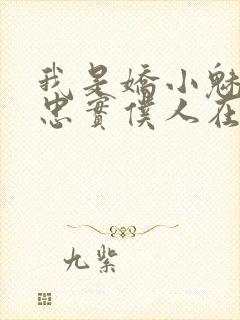 我是嬌小魅
忠實僕人在
九紫